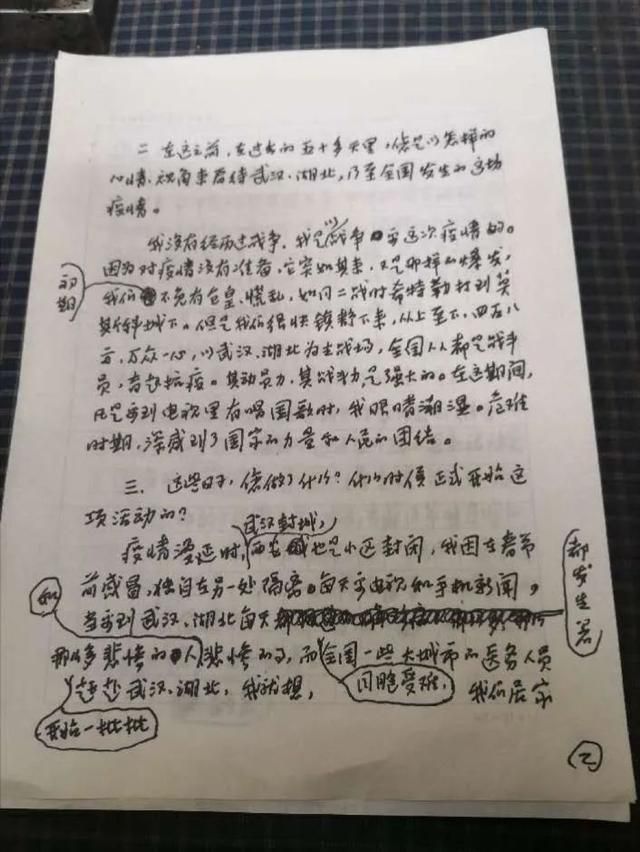 二 在这之前,在过去的五十多天里,您是以怎样的
心情、视角来看待武汉、湖北,乃至全国发生的这场
疫情。
我没有经历过战争,我是以战争看这次疫情的。
因为对疫情没有准备,它突如其来,又是那样的爆发,
初期
我们不免有仓皇、慌乱,如同二战时希特勒打到莫
斯科城下。但是我们很快镇静下来,从上至下,四面八
方,万众一心,以武汉、湖北为主战场,全国人人都是战斗
员,奋起抗疫。其动员力,其战斗力是强大的。在这期间,
凡是看到电视里有唱国歌时,我眼睛潮湿。危难
时期,深感到了国家的力量和人民的团结。
三、这些日子,您做了什么?什么时候正式开始这
项活动的?
武汉封城,
疫情漫延时,西安也是小区封闭,我因在春节
前感冒,独自在另一处隔离。每天看电视和手机新闻,
当看到武汉、湖北每天
都发生着
那么多悲惨的人
和
悲惨的事,而全国一些大城市的医务人员
开始一批批
赶赴武汉、湖北,我就想,
同胞受难,
我们居家
2